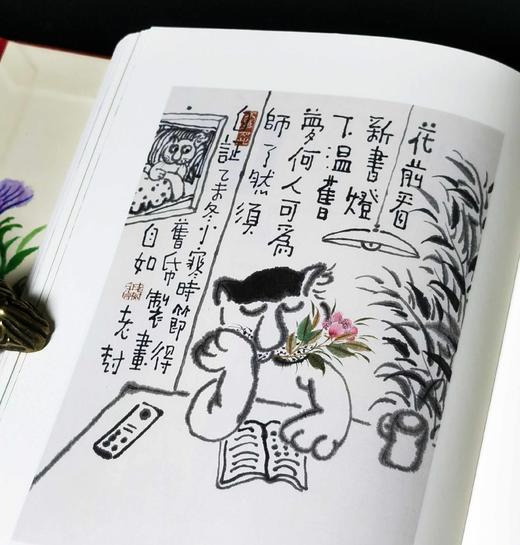 花前看
新書燈
下温舊
夢何人可為
師了然須
自誕
乙未冬小寒時節得
舊帋製畫
自如
老村